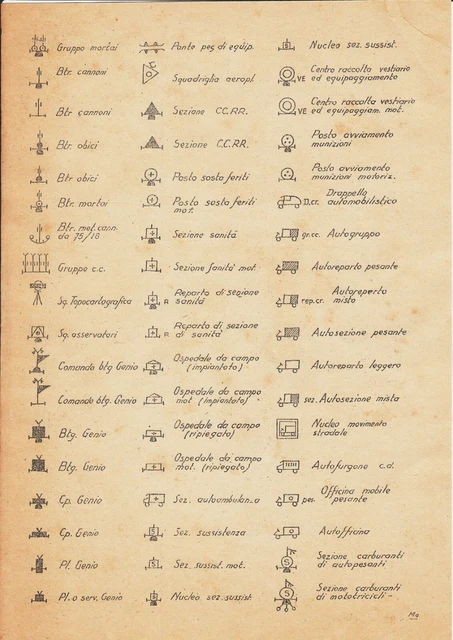 Gruppo mortai
Btr. cannoni
Btr cannoni
Btr. obici
Btr obici
Btr. mortai
Btr. mot. cann.
da 75/18
Gruppo c.c.
Sq. Topocartografica
Sq. osservatori
Comando btg Genio
Comando btg. Genio
Btg. Genio
Btg. Genio
Cp. Genio
Cp. Genio
Pl. Genio
Pl. o serv. Genio
Ponte pes. di equip.
Squadriglia aeropl.
Sezione CC.RR.
Sezione C.C.RR.
Posto sosta feriti
Posto sosta feriti
mot.
Sezione sanità
Sezione sanità mot.
R
Reparto di sezione
sanità
R
Reparto di sezione
di sanità
Ospedale da campo
(impiantato)
Ospedale da campo
mot (impiantato)
Ospedale da campo
(ripiegato)
Ospedale da campo
mot. (ripiegato)
Sez. autoambulan.a
S
Sez. sussistenza
S
Sez. sussist. mot.
Nucleo sez. sussist.
Nucleo sez. sussist.
VE
Centro raccolta vestiario
ed equipaggiamento
VE
Centro raccolta vestiario
ed equipaggiam. mot.
Posto avviamento
munizioni
Posto avviamento
munizioni motoriz.
D.cr.
Drappello
automobilistico
gr.cc. Autogruppo
Autoreparto pesante
rep.cr.
Autoreparto
misto
Autosezione pesante
Autoreparto leggero
sez. Autosezione mista
Nucleo movimento
stradale
Autofurgone c.d.
pes.
Officina mobile
pesante
Autofficina
S
Sezione carburanti
di autopesanti
S
Sezione carburanti
di mototricicli